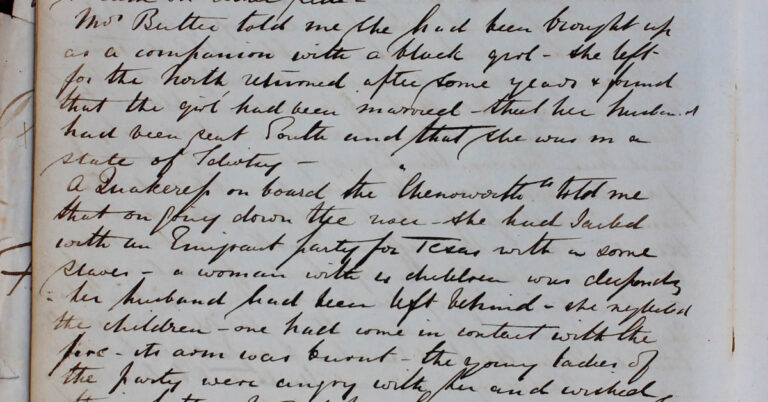 Mrs Butler told me she had been brought up
as a companion with a black girl – she left
for the north returned after some years & found
that the girl had been married – that her husband
had been sent South and that she was in a
state of Idiotcy –
A Quakeress on board the "Chenoworth" told me
that on going down the river she had sailed
with an Emigrant party for Texas with some
slaves – a woman with children was desponding
her husband had been left behind – she neglected
the children – one had come in contact with the
fire – its arm was burnt – the young ladies of
the party were angry with her and wished